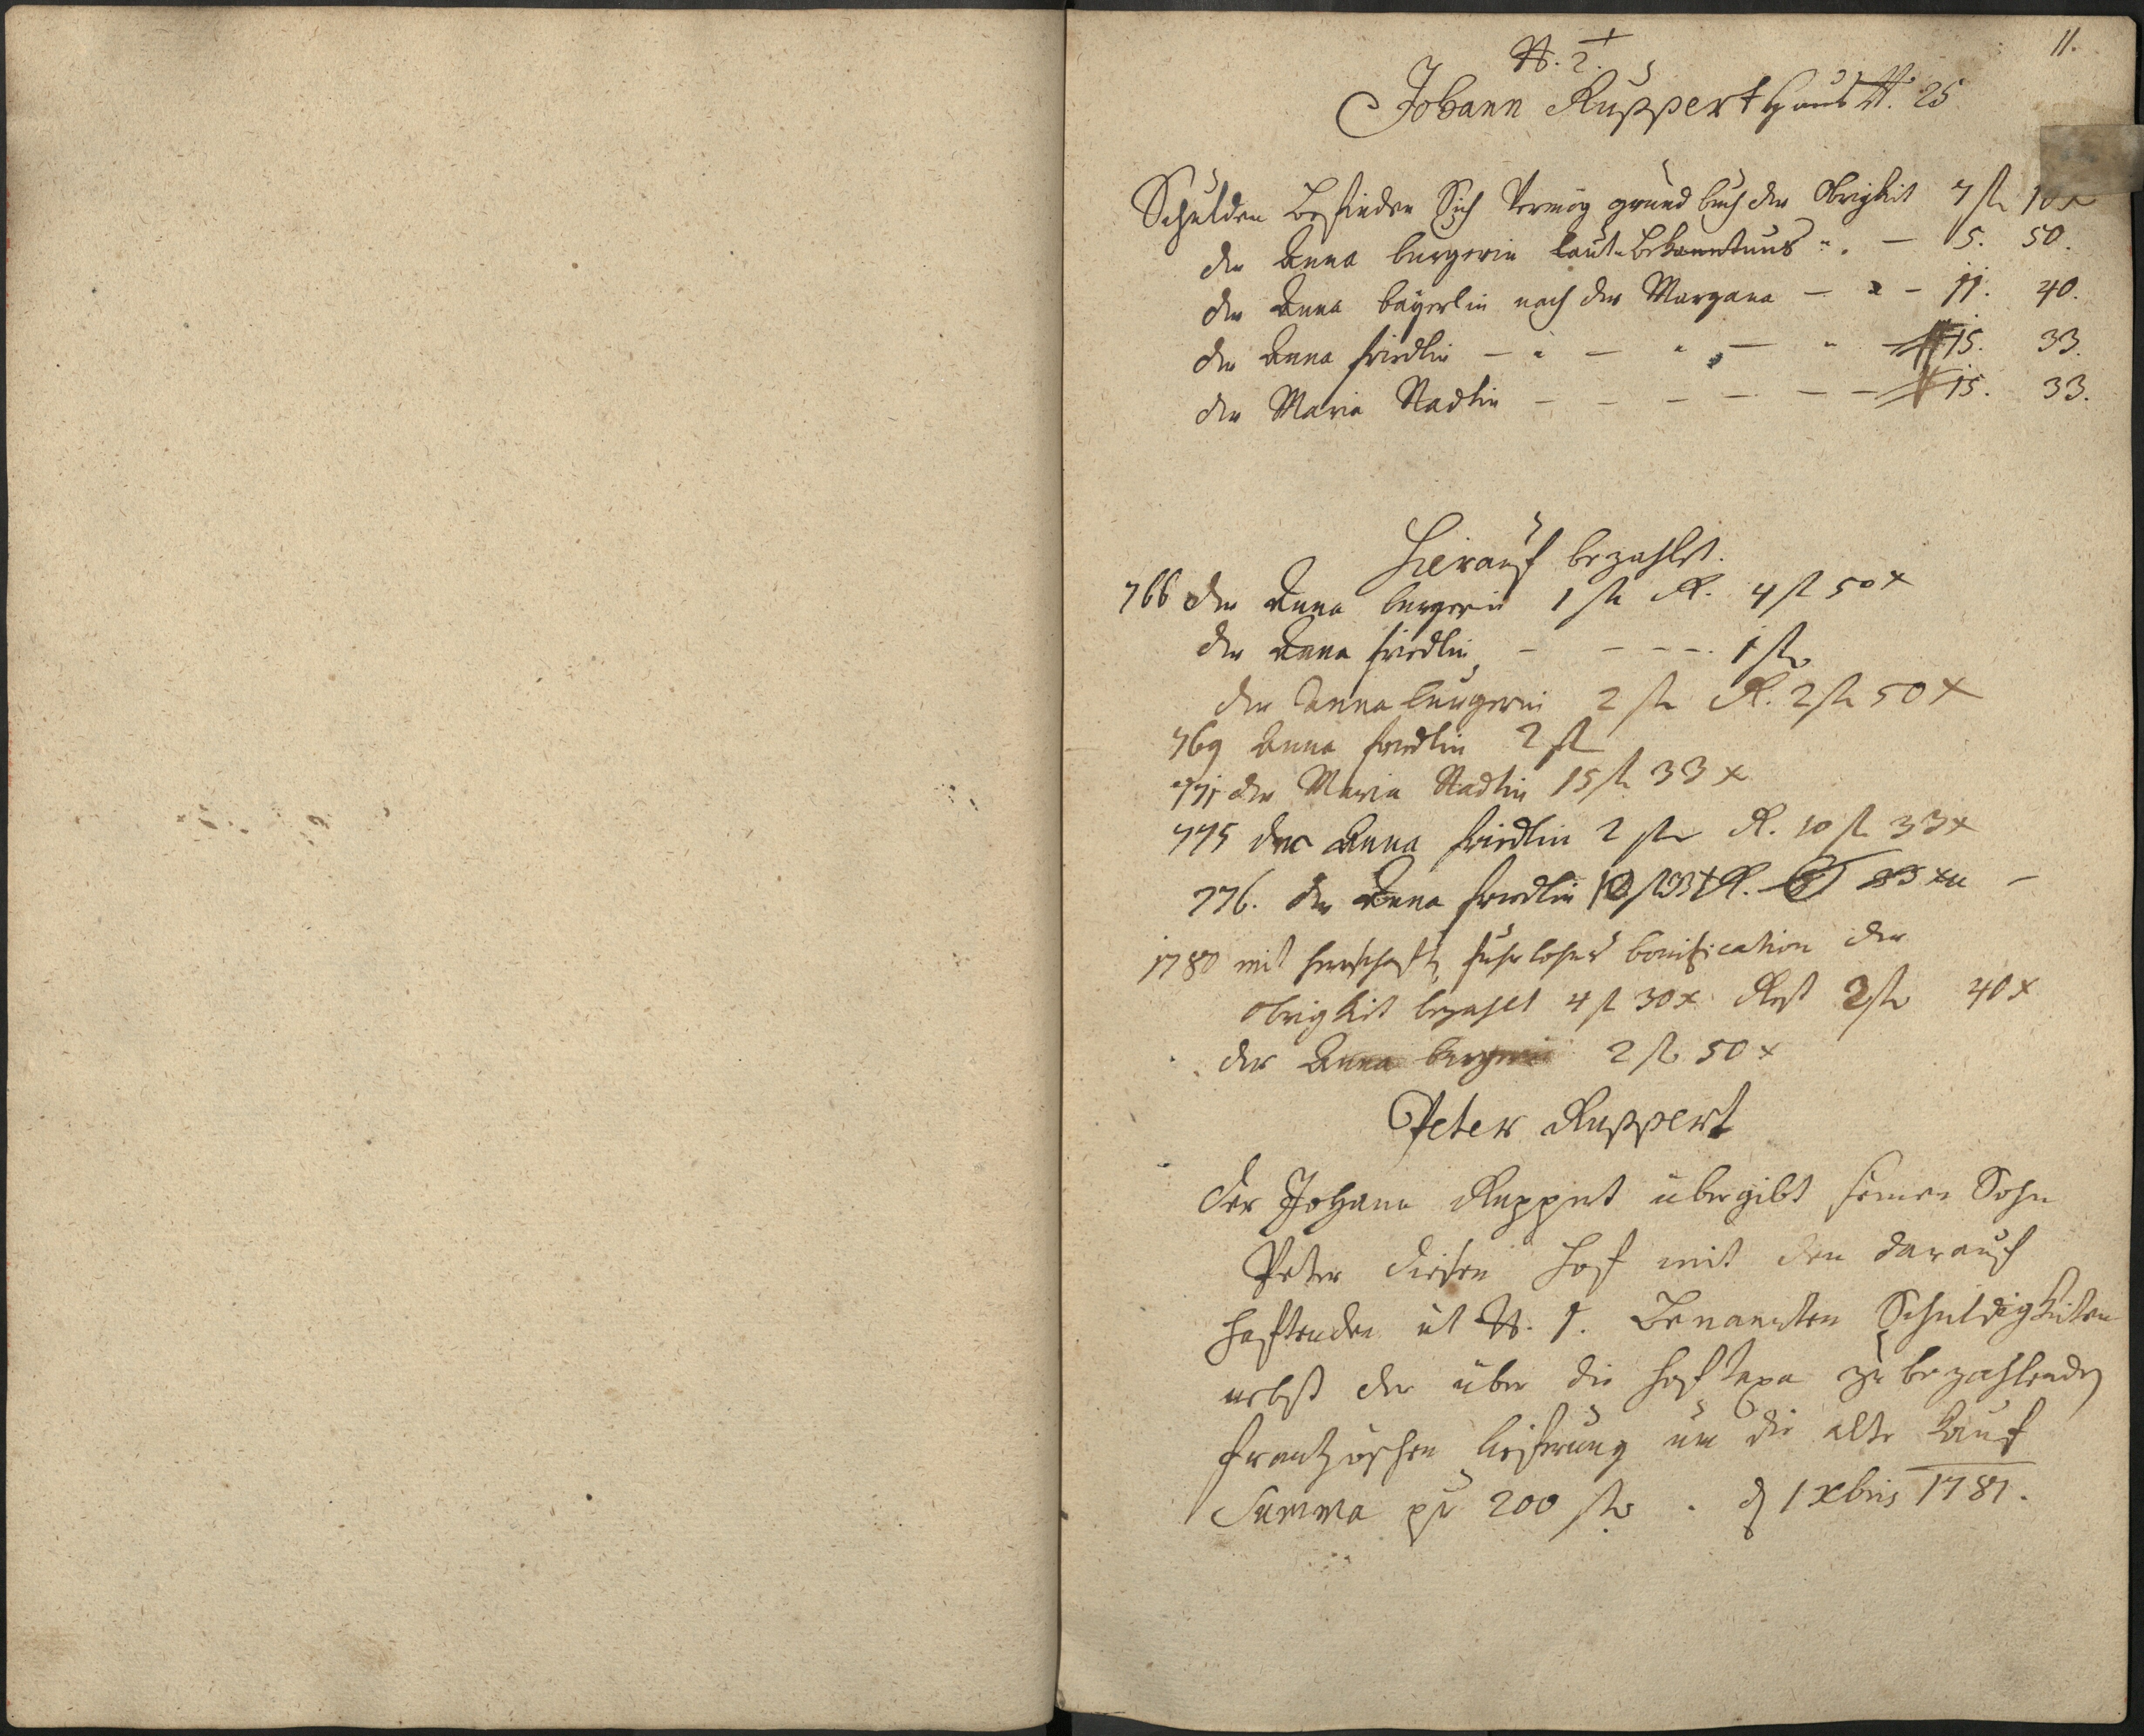 11.
N. 2.
Johann Ruppert Haus N. 25
Schulden Befinden Sich Vermög grund buch der Obrigkeit 7 fl 10 x
der Anna burgerin laut Bekanntnus — 5. 50.
der Anna bayerlin nach der Margana — 11. 40.
der Anna friedlin — 15. 33.
der Maria Stadlin — 15. 33.
Hierauf bezahlt.
766 der Anna burgerin 1 fl R. 4 fl 50 x
der Anna friedlin — 1 fl
der Anna burgerin 2 fl R. 2 fl 50 x
769 Anna friedlin 2 fl
771 der Maria Stadlin 15 fl 33 x
775 der Anna friedlin 2 fl R. 10 fl 33 x
776. der Anna friedlin 10 fl 33 x R.
1780 mit herrschaftl fuhrlohns bonification der
obrigkeit bezahlt 4 fl 30 x Rest 2 fl 40 x
der Anna burgerin 2 fl 50 x
Peter Ruppert
Der Johann Ruppert übergibt seinen Sohn
Peter diesen Hof mit den darauf
haftenden ut N. 1. Benannten Schuldigkeiten
nebst der über die Hoftaxa zu bezahlenden
frantzösischen lieferung um die alte Kauf
Summa pr 200 fl. d 1 xbris 1781.